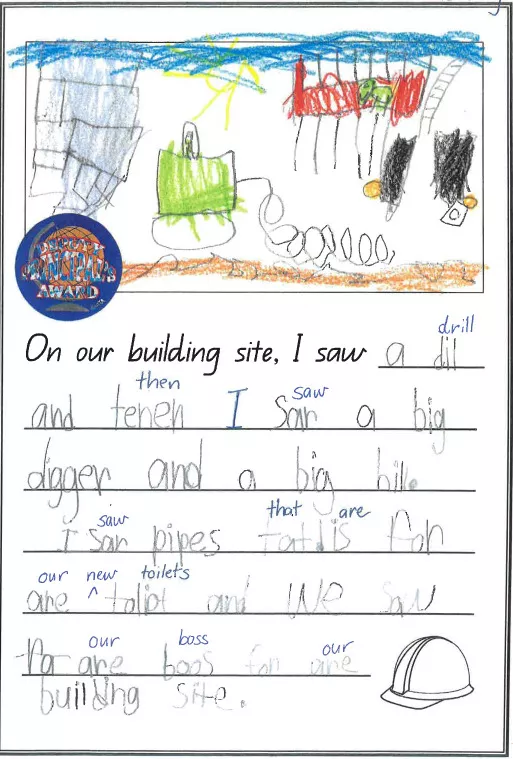 PRINCIPALS
AWARD
drill
On our building site, I saw a dil
then saw
and tenen I Sar a big
digger and a big bik.
saw that are
I sar pipes tat is for
our new toilets
are ^ toliot and we saw
our boss our
are boos for are
building site.